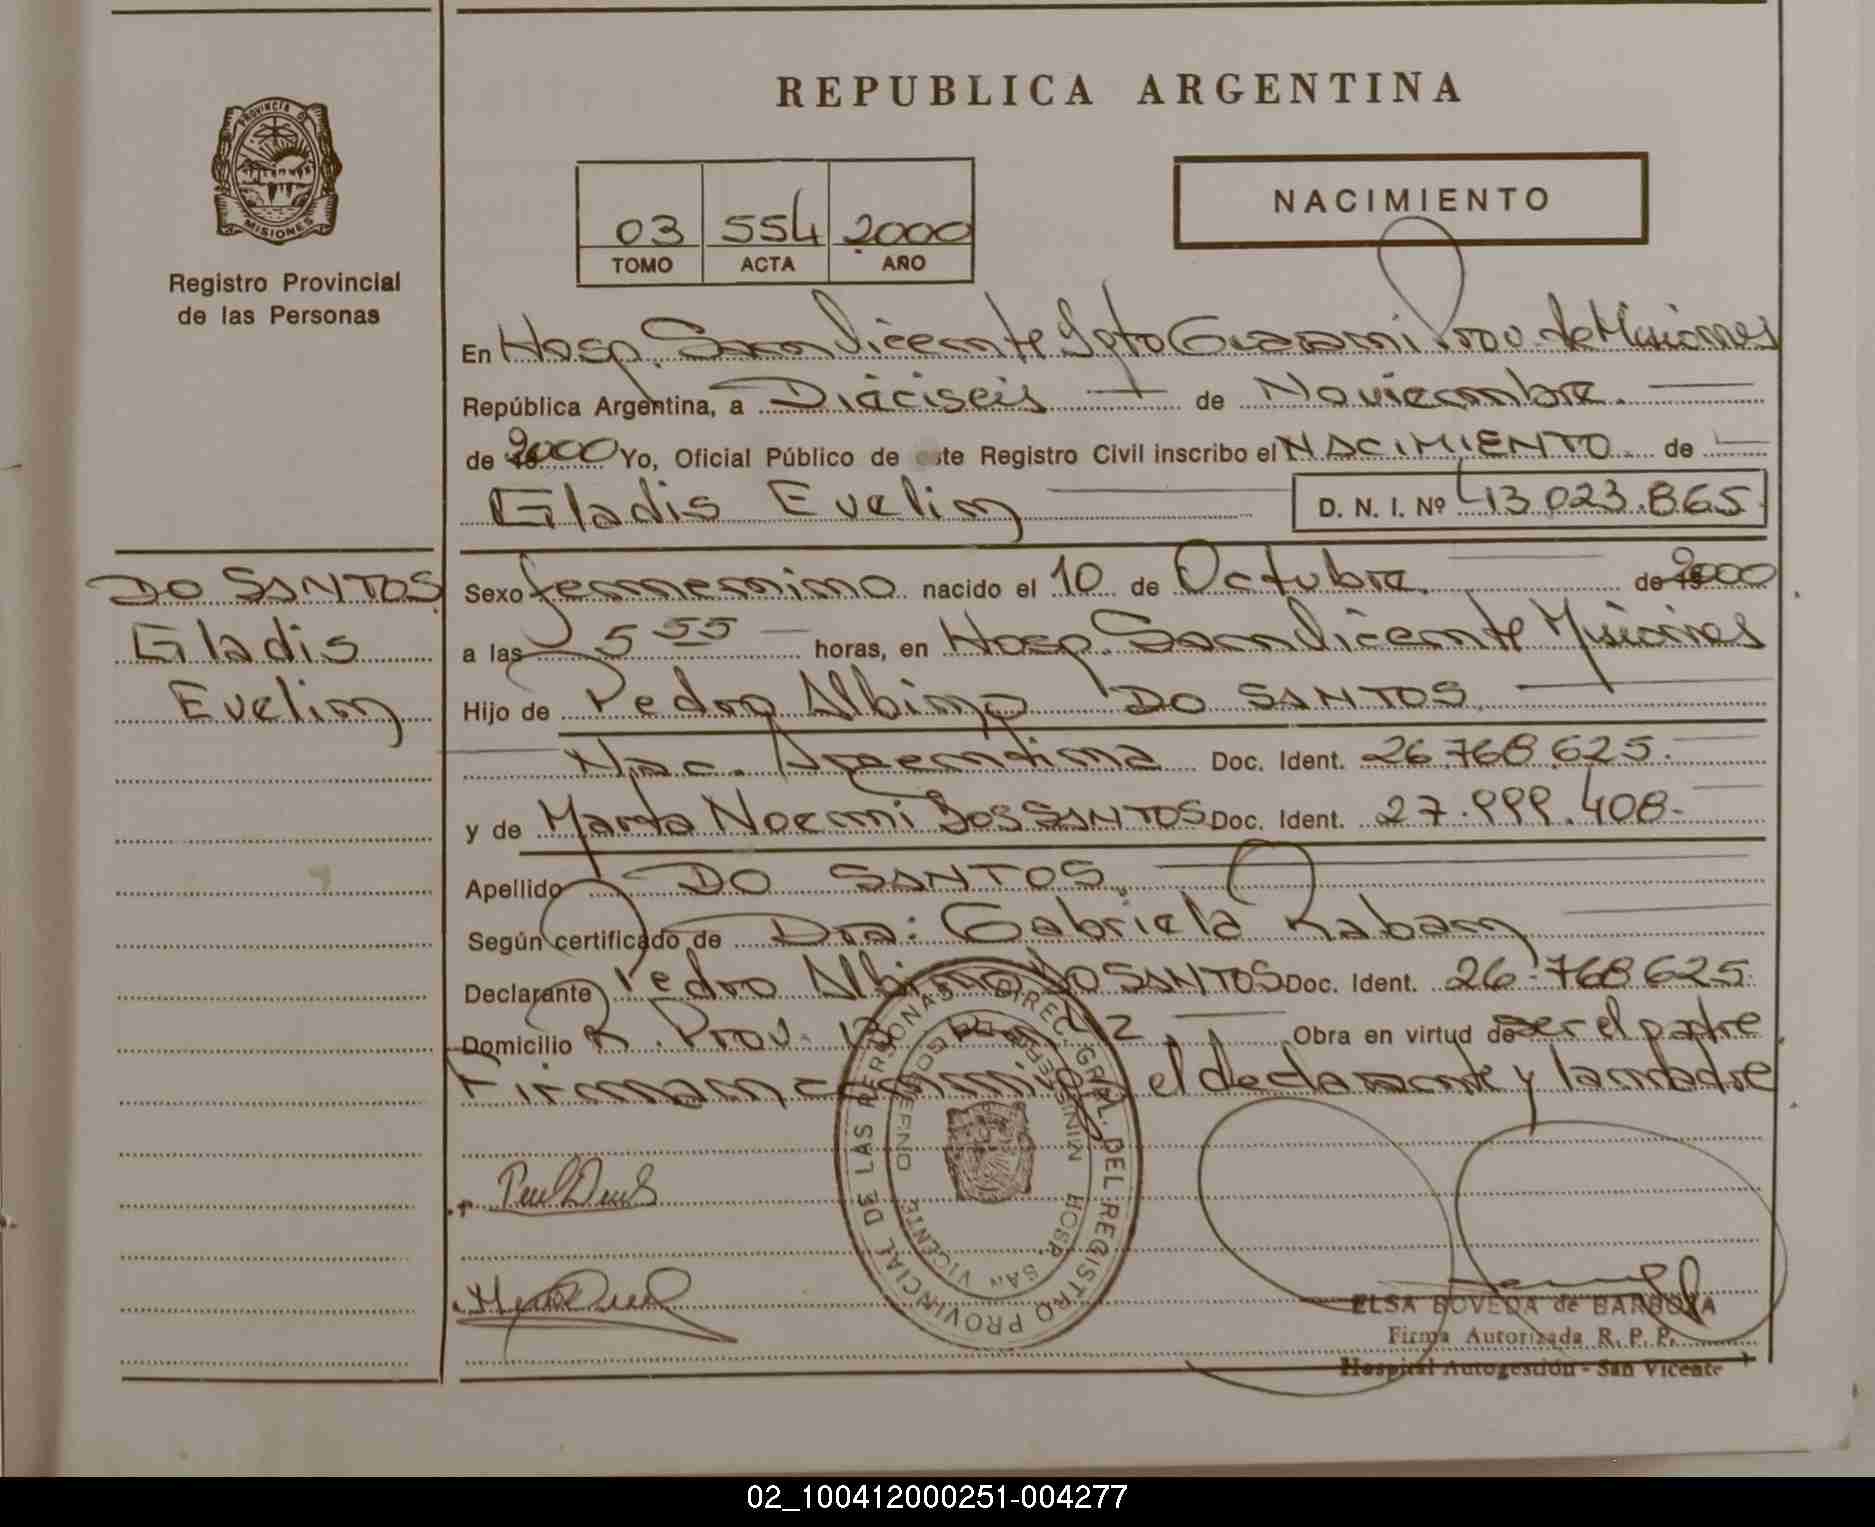 REPUBLICA ARGENTINA
PROVINCIA DE
MISIONES
Registro Provincial
de las Personas
03 554 2000
TOMO ACTA AÑO
NACIMIENTO
En Hosp. San Vicente Dpto Guarani Prov. de Misiones
República Argentina, a Diaciseis de Noviembre.
de 2000 Yo, Oficial Público de este Registro Civil inscribo el NACIMIENTO de
Gladis Evelin D. N. I. Nº 43.023.865
DO SANTOS
Gladis
Evelin
Sexo femenino nacido el 10 de Octubre de 2000
a las 5 55 horas, en Hosp. San Vicente Misiones
Hijo de Pedro Albino DO SANTOS
Nac. Argentina Doc. Ident. 26.768.625.
y de Marta Noemi DOS SANTOS Doc. Ident. 27.999.408-
Apellido DO SANTOS.
Según certificado de Dra: Gabriela Raban
Declarante Pedro Albino DO SANTOS Doc. Ident. 26.768.625
Domicilio R. Prov. 13 Obra en virtud de ser el padre
Firman conmigo el declarante y la madre
DIREC. GRAL. DEL REGISTRO PROVINCIAL DE LAS PERSONAS
HOSP. SAN VICENTE
ELSA BOVEDA de BARBOZA
Firma Autorizada R. P. P.
Hospital Autogestión - San Vicente
02_100412000251-004277